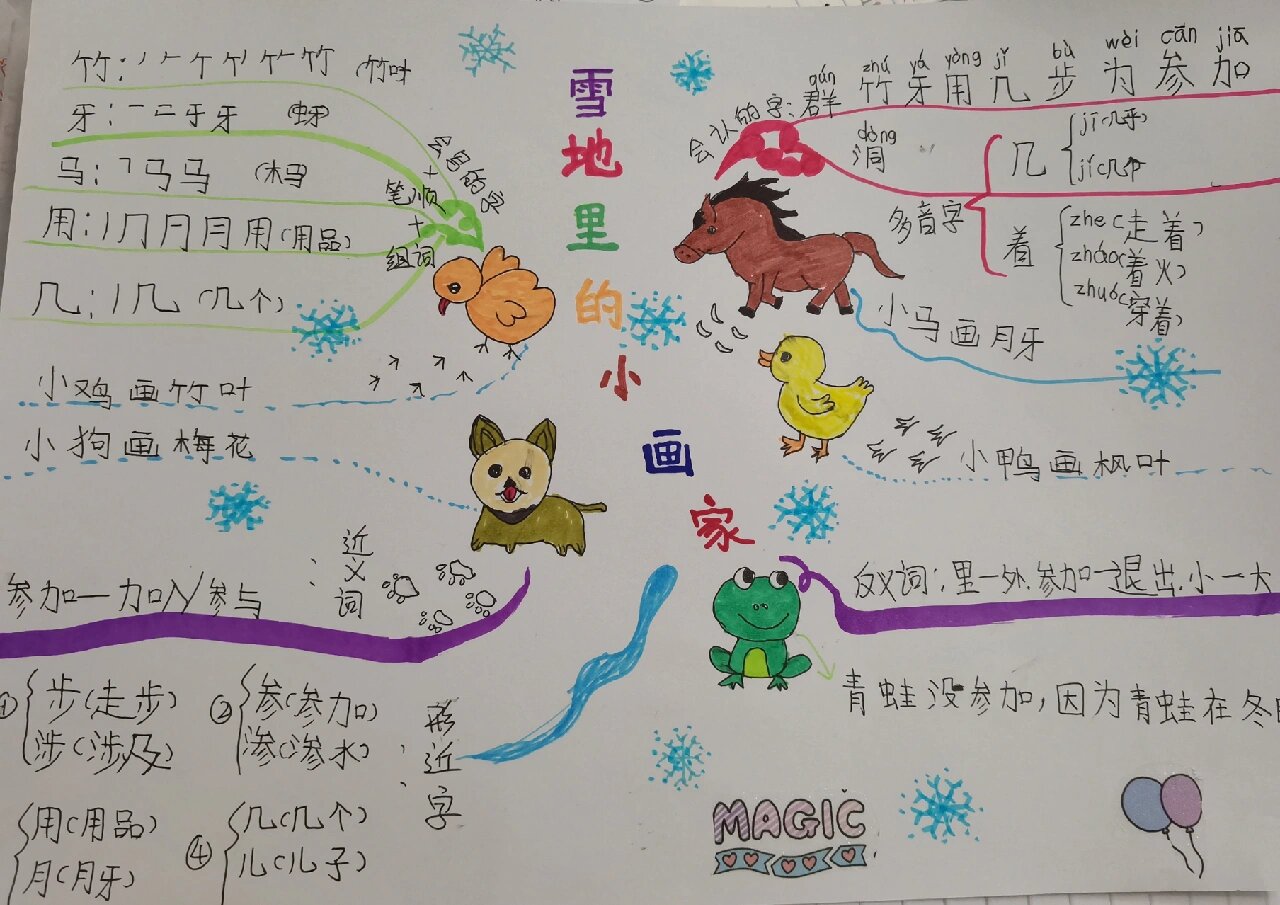 雪地里的小画家
会写的字+笔顺+组词
竹：丿 𠂉 ケ 竹 (竹叶)
牙：一 二 于 牙 (蚜牙)
马：㇕ 马 马
用：丨 冂 月 月 用 (用品)
几：丨 几 (几个)
小鸡画竹叶
小狗画梅花
近义词：
参加—加入/参与
形近字：
① 步(走步)
涉(涉及)
② 参(参加)
渗(渗水)
用(用品)
月(月牙)
④ 几(几个)
儿(儿子)
qún zhú yá yòng jǐ bù wèi cān jiā
会认的字：群 竹 牙 用 几 步 为 参 加
dòng
洞
多音字
几 jī(几乎)
jǐ(几个)
着 zhe(走着)
zháo(着火)
zhuó(穿着)
小马画月牙
小鸭画枫叶
反义词：里—外.参加—退出.小—大
青蛙没参加,因为青蛙在冬
MAGIC